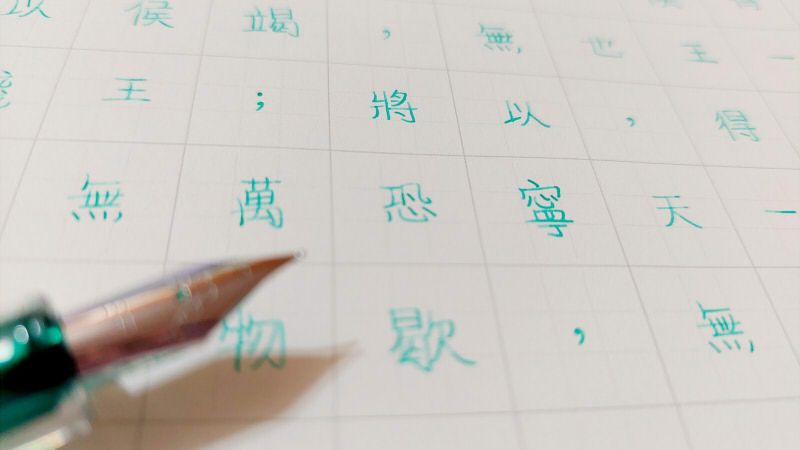 得一
侯王得一
也，天無
無以寧，
，將恐歇
竭；萬物
侯王無
以